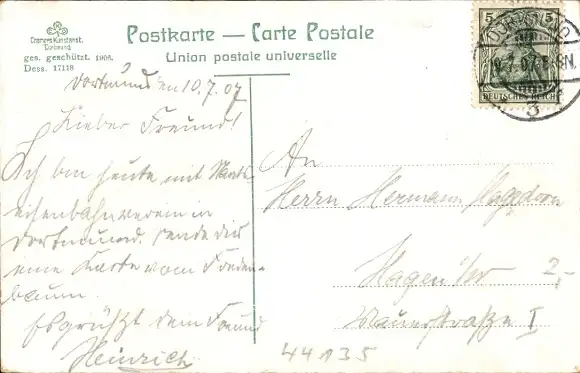 Postkarte — Carte Postale
Union postale universelle
Cramers Kunstanst.
Dortmund
ges. geschützt. 1906.
Dess. 17118
5 5
DEUTSCHES REICH
DORTMUND
10.7.07. 8-9N.
3
Dortmund den 10.7.07
Lieber Freund!
Ich bin heute mit
eisenbahnverein in
Dortmund. sende dir
eine Karte vom Freden-
baum.
Es grüßt dein Freund
Heinrich
An
Herrn Hermann Haggdorn
Hagen i/W
straße I
2,-
44135